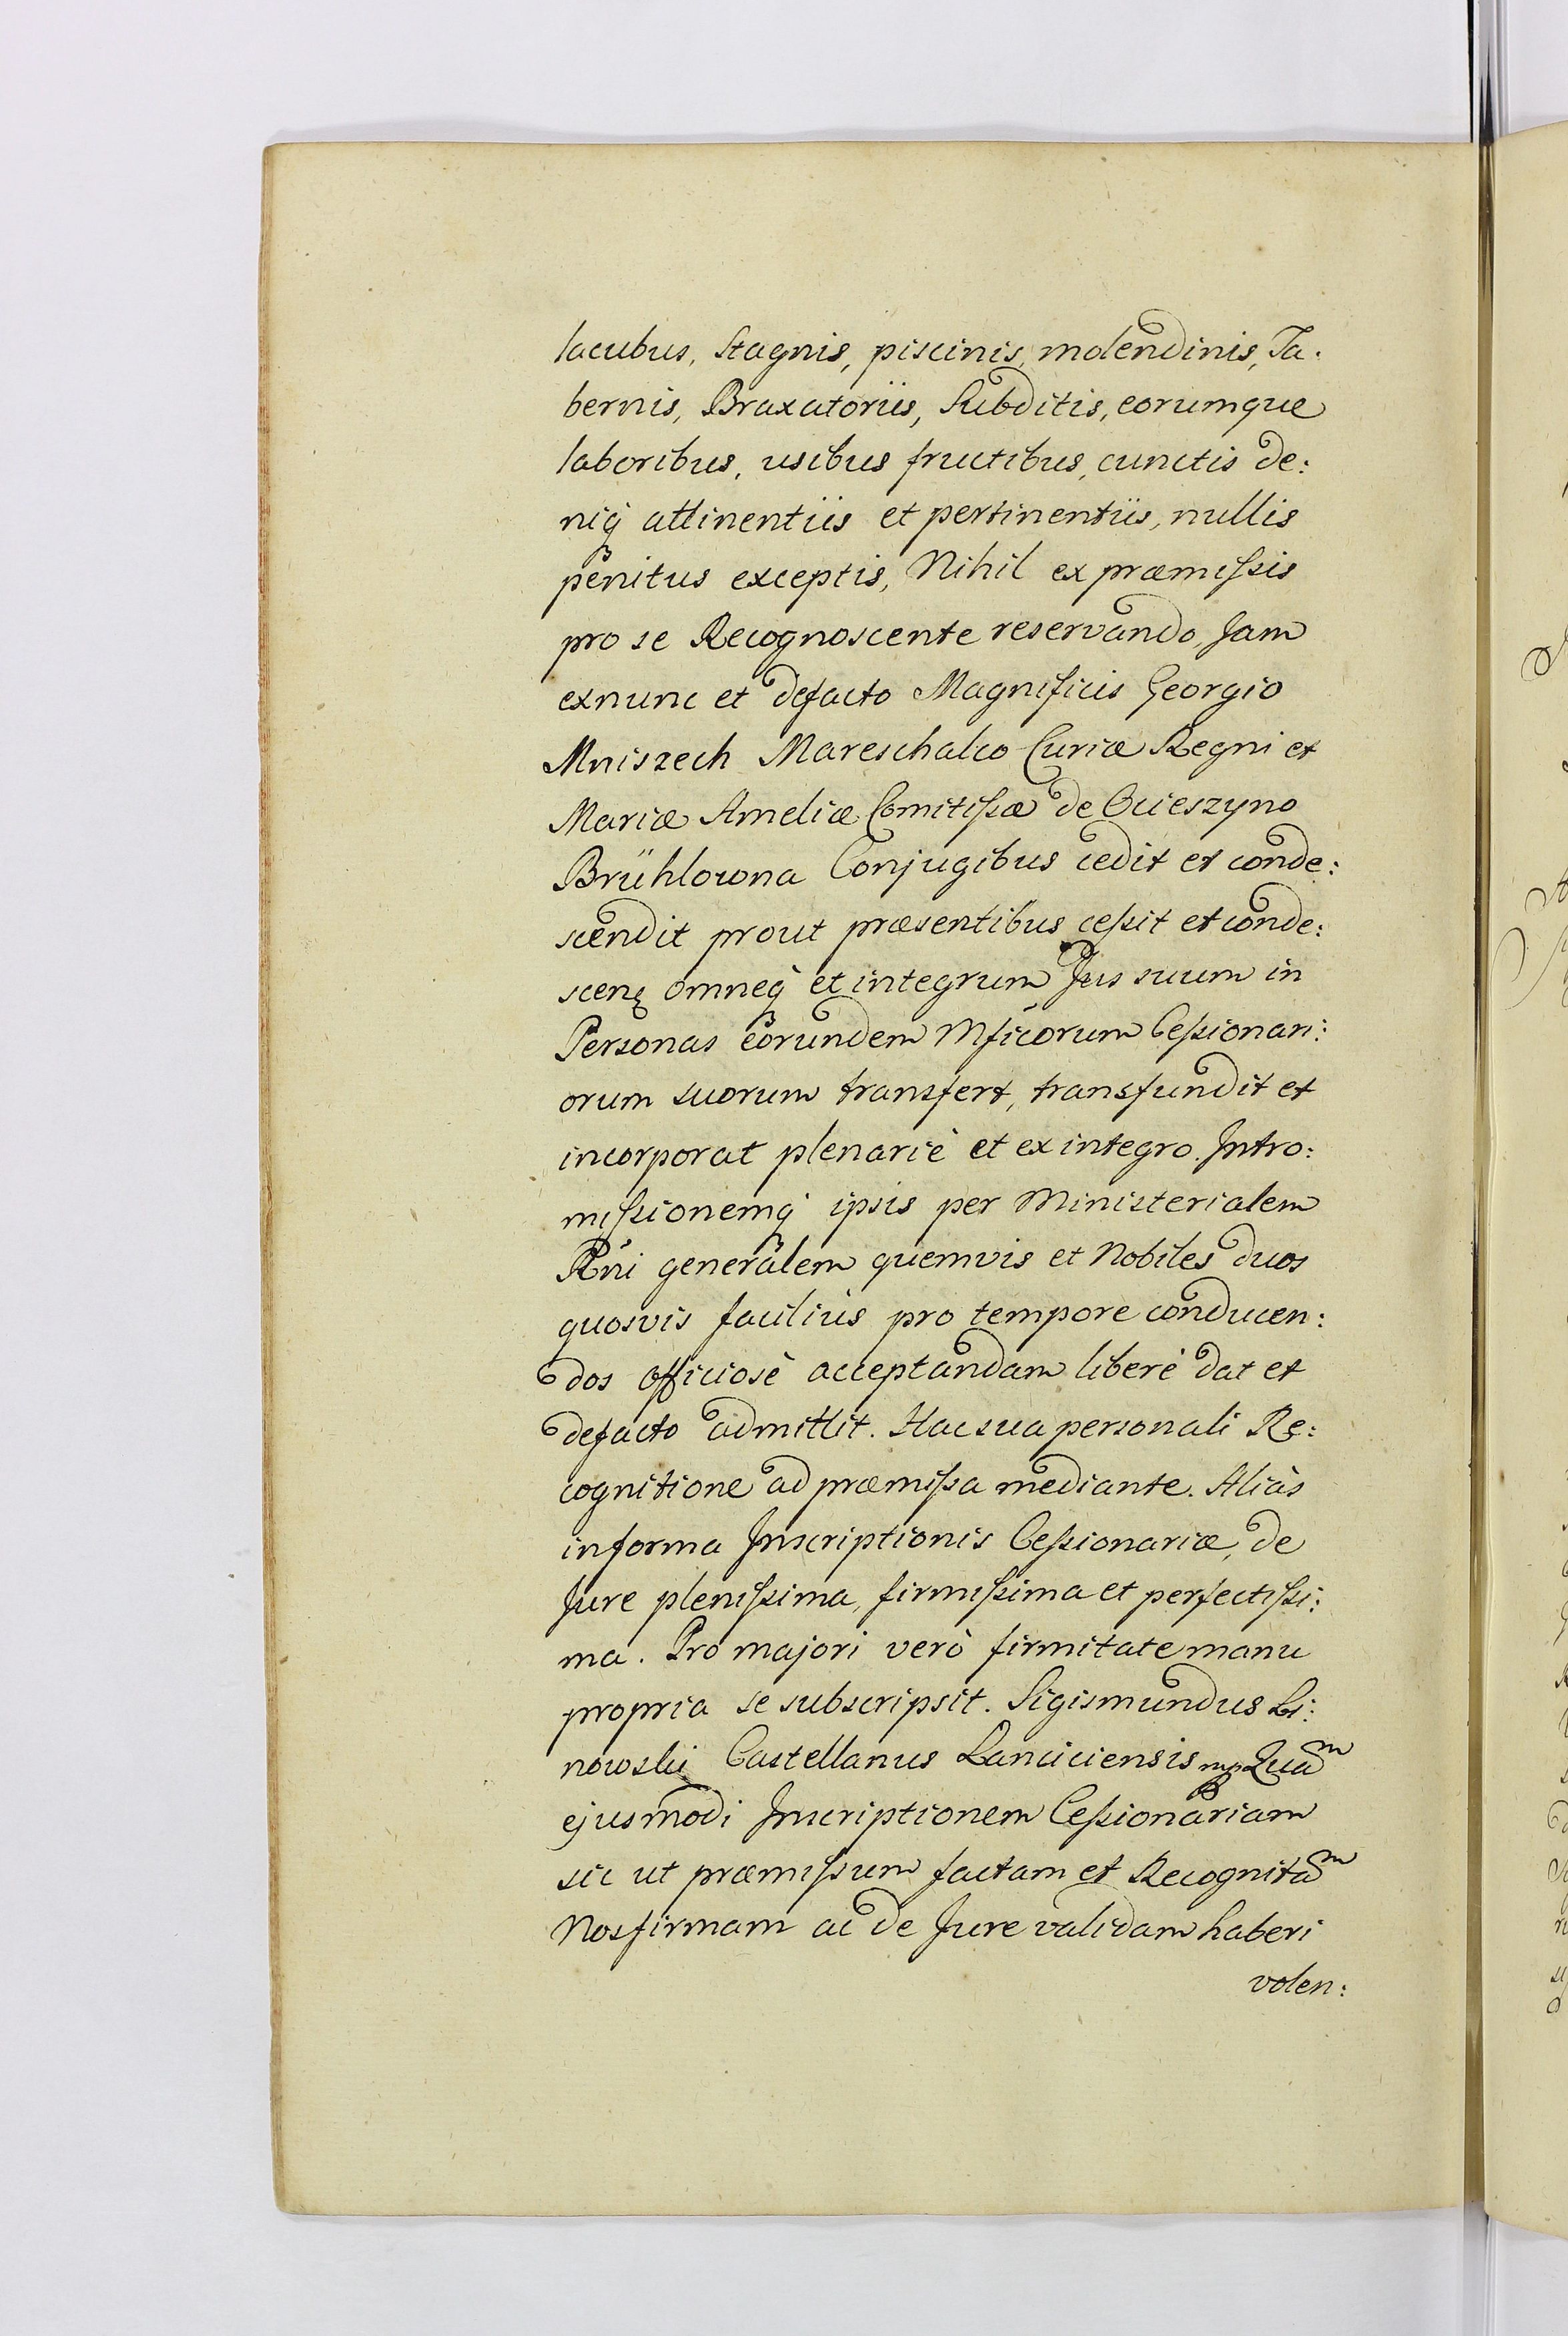 lacubus, Stagnis, piscinis, molendinis, Ta:
bernis, Braxatoriis, Subditis, eorumque
laboribus, usibus fructibus, cunctis de:
niq́ attinentiis et pertinentiis, nullis
penitus exceptis, Nihil ex præmiſsis
pro se Recognoscente reservando, Jam
exnunc et defacto Magnificis Georgio
Mniszech Mareschalco Curiæ Regni et
Mariæ Ameliæ Comitiſsæ de Ocieszyno
Brühlowna Conjugibus cedit et conde:
scendit prout præsentibus ceſsit et conde:
scenꝫ omneq́ et integrum Jus suum in
Personas eorundem Mficorum Ceſsionari:
orum suorum transfert, transfundit et
incorporat plenariè et ex integro. Intro:
miſsionemq́ ipsis per Ministerialem
Rńi generalem quemvis et Nobiles duos
quosvis faciliùs pro tempore conducen:
dos officiosè acceptandam liberè dat et
defacto admittit. Hac sua personali Re:
cognitione ad præmiſsa mediante. Aliàs
informa Inscriptionis Ceſsionariæ, de
Jure pleniſsima, firmiſsima et perfectiſsi:
ma. Pro majori verò firmitate manu
propria se subscripsit. Sigismundus Li:
nowski Castellanus Lanciciensis mp Quam
ejusmodi Inscriptionem Ceſsionariam
sic ut præmiſsum factam et Recognitam
Nos firmam ac de Jure validam haberi
volen: